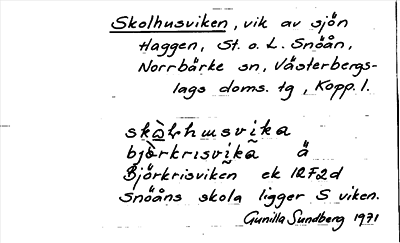 Skolhusviken, vik av sjön
Haggen, St. o. L. Snöån,
Norrbärke sn, Västerbergs-
lags doms. tg, Kopp. l.
skὰlhusvika
bjὸrkrisvika ä
Björkrisviken ek 12F2d
Snöåns skola ligger S viken.
Gunilla Sundberg 1971